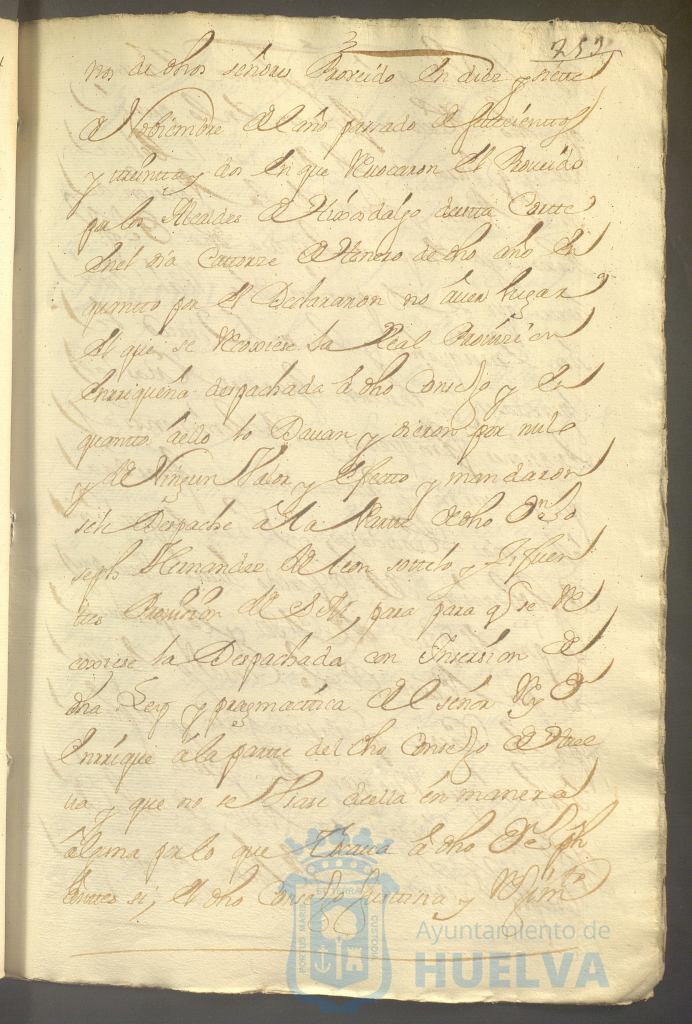 252
nos de dhos señores Proveido en diez y siete
de Nobiembre del año passado de settecienttos
y treintta y dos en que Revocaron el Proveido
por los Alcaldes de Hixosdalgo de esta Corte
en el dia Cattorze de Henero de dho año en
quantto por el Declararon no aver lugar
al que se Recoxiese la Real Provision
Enrriqueña despachada a dho Consejo y en
quantto a ello lo Davan y dieron por nulo
y de Ningun Valor y efecto y mandaron
se le Despache a la Parte de dho Dn Jo
seph Hernandez de Leon sottelo y Zifuen
tes Provision de S M, para para q se Re
coxiese la Despachada con Insercion de
dha Ley y pragmactica del señor Rey Dn
Enrrique a la parte del dho Consejo de Huel
va y que no se Usase de ella en manera
alguna por lo que Tocava a dho Dn Joseph
entre si, el dho Consejo Justicia y Rejimto
PORTUS MARIS ET TERRAE CUSTODIA
Ayuntamiento de
HUELVA